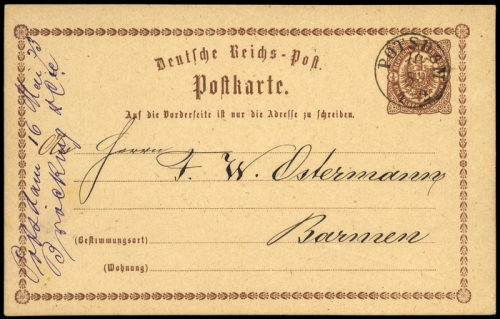 Deutsche Reichs-Post.
Postkarte.
Auf die Vorderseite ist nur die Adresse zu schreiben.
POTSDAM
An Herrn
F. W. Ostermann
Barmen
(Bestimmungsort)
(Wohnung)
Potsdam 16 Mai 75
Brocking &Cie